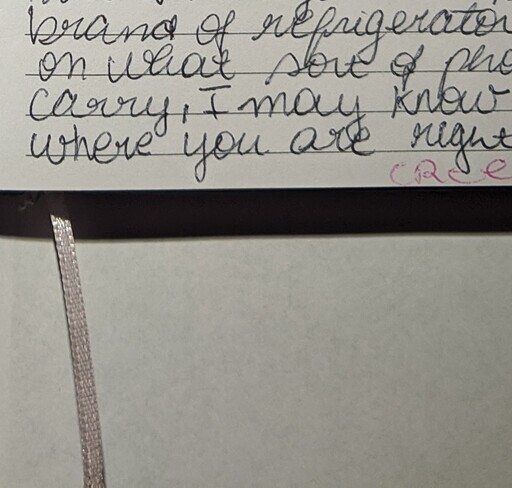 brand of refrigerator
on what sort of pho
carry, I may know
where you are right